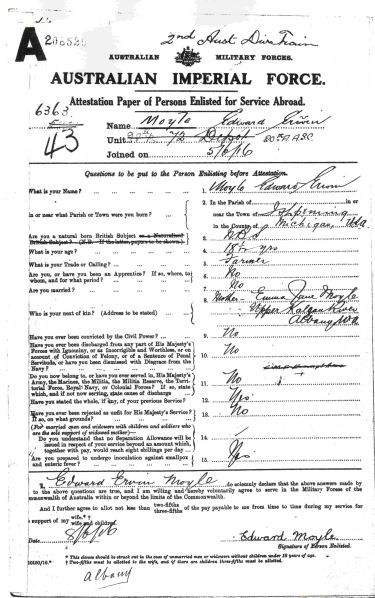 A
2nd Aust Div Train
AUSTRALIAN MILITARY FORCES.
AUSTRALIAN IMPERIAL FORCE.
Attestation Paper of Persons Enlisted for Service Abroad.
6363
43
Name Moyle Edward Erwin
Unit Depot
Joined on 5/6/16
Questions to be put to the Person Enlisting before Attestation.
What is your Name? 1. Moyle Edward Erwin
In or near what Parish or Town were you born? 2. In the Parish of
near the Town of
in the County of Michigan, USA
Are you a natural born British Subject or a Naturalised British Subject? (N.B.—If the latter, papers to be shown.) 3.
What is your age? 4. yrs
What is your Trade or Calling? 5. Farmer
Are you, or have you been an Apprentice? If so, where, to whom, and for what period? 6. No
Are you married? 7. No
Who is your next of kin? (Address to be stated) 8. Mother - Emma Jane Moyle
Upper Kalgan River
Albany WA
Have you ever been convicted by the Civil Power? 9. No
Have you ever been discharged from any part of His Majesty's Forces with Ignominy, or as Incorrigible and Worthless, or on account of Conviction of Felony, or of a Sentence of Penal Servitude, or have you been dismissed with Disgrace from the Navy? 10.
Do you now belong to, or have you ever served in, His Majesty's Army, the Marines, the Militia, the Militia Reserve, the Territorial Force, Royal Navy, or Colonial Forces? If so, state which, and if not now serving, state cause of discharge 11. No
Have you stated the whole, if any, of your previous Service? 12. Yes
Have you ever been rejected as unfit for His Majesty's Service? If so, on what grounds? 13. No
(For married men and widowers with children and soldiers who are the sole support of widowed mother)—
Do you understand that no Separation Allowance will be issued in respect of your service beyond an amount which, together with pay, would reach eight shillings per day? 14.
Are you prepared to undergo inoculation against smallpox and enteric fever? 15. Yes
I, Edward Erwin Moyle do solemnly declare that the above answers made by me to the above questions are true, and I am willing and hereby voluntarily agree to serve in the Military Forces of the Commonwealth of Australia within or beyond the limits of the Commonwealth.
And I further agree to allot not less than two-fifths three-fifths of the pay payable to me from time to time during my service for support of my wife.*† wife and children.
Date 8/6/16
Edward Moyle
Signature of Person Enlisted.
* This clause should be struck out in the case of unmarried men or widowers without children under 18 years of age.
† Two-fifths must be allotted to the wife, and if there are children three-fifths must be allotted.
Albany